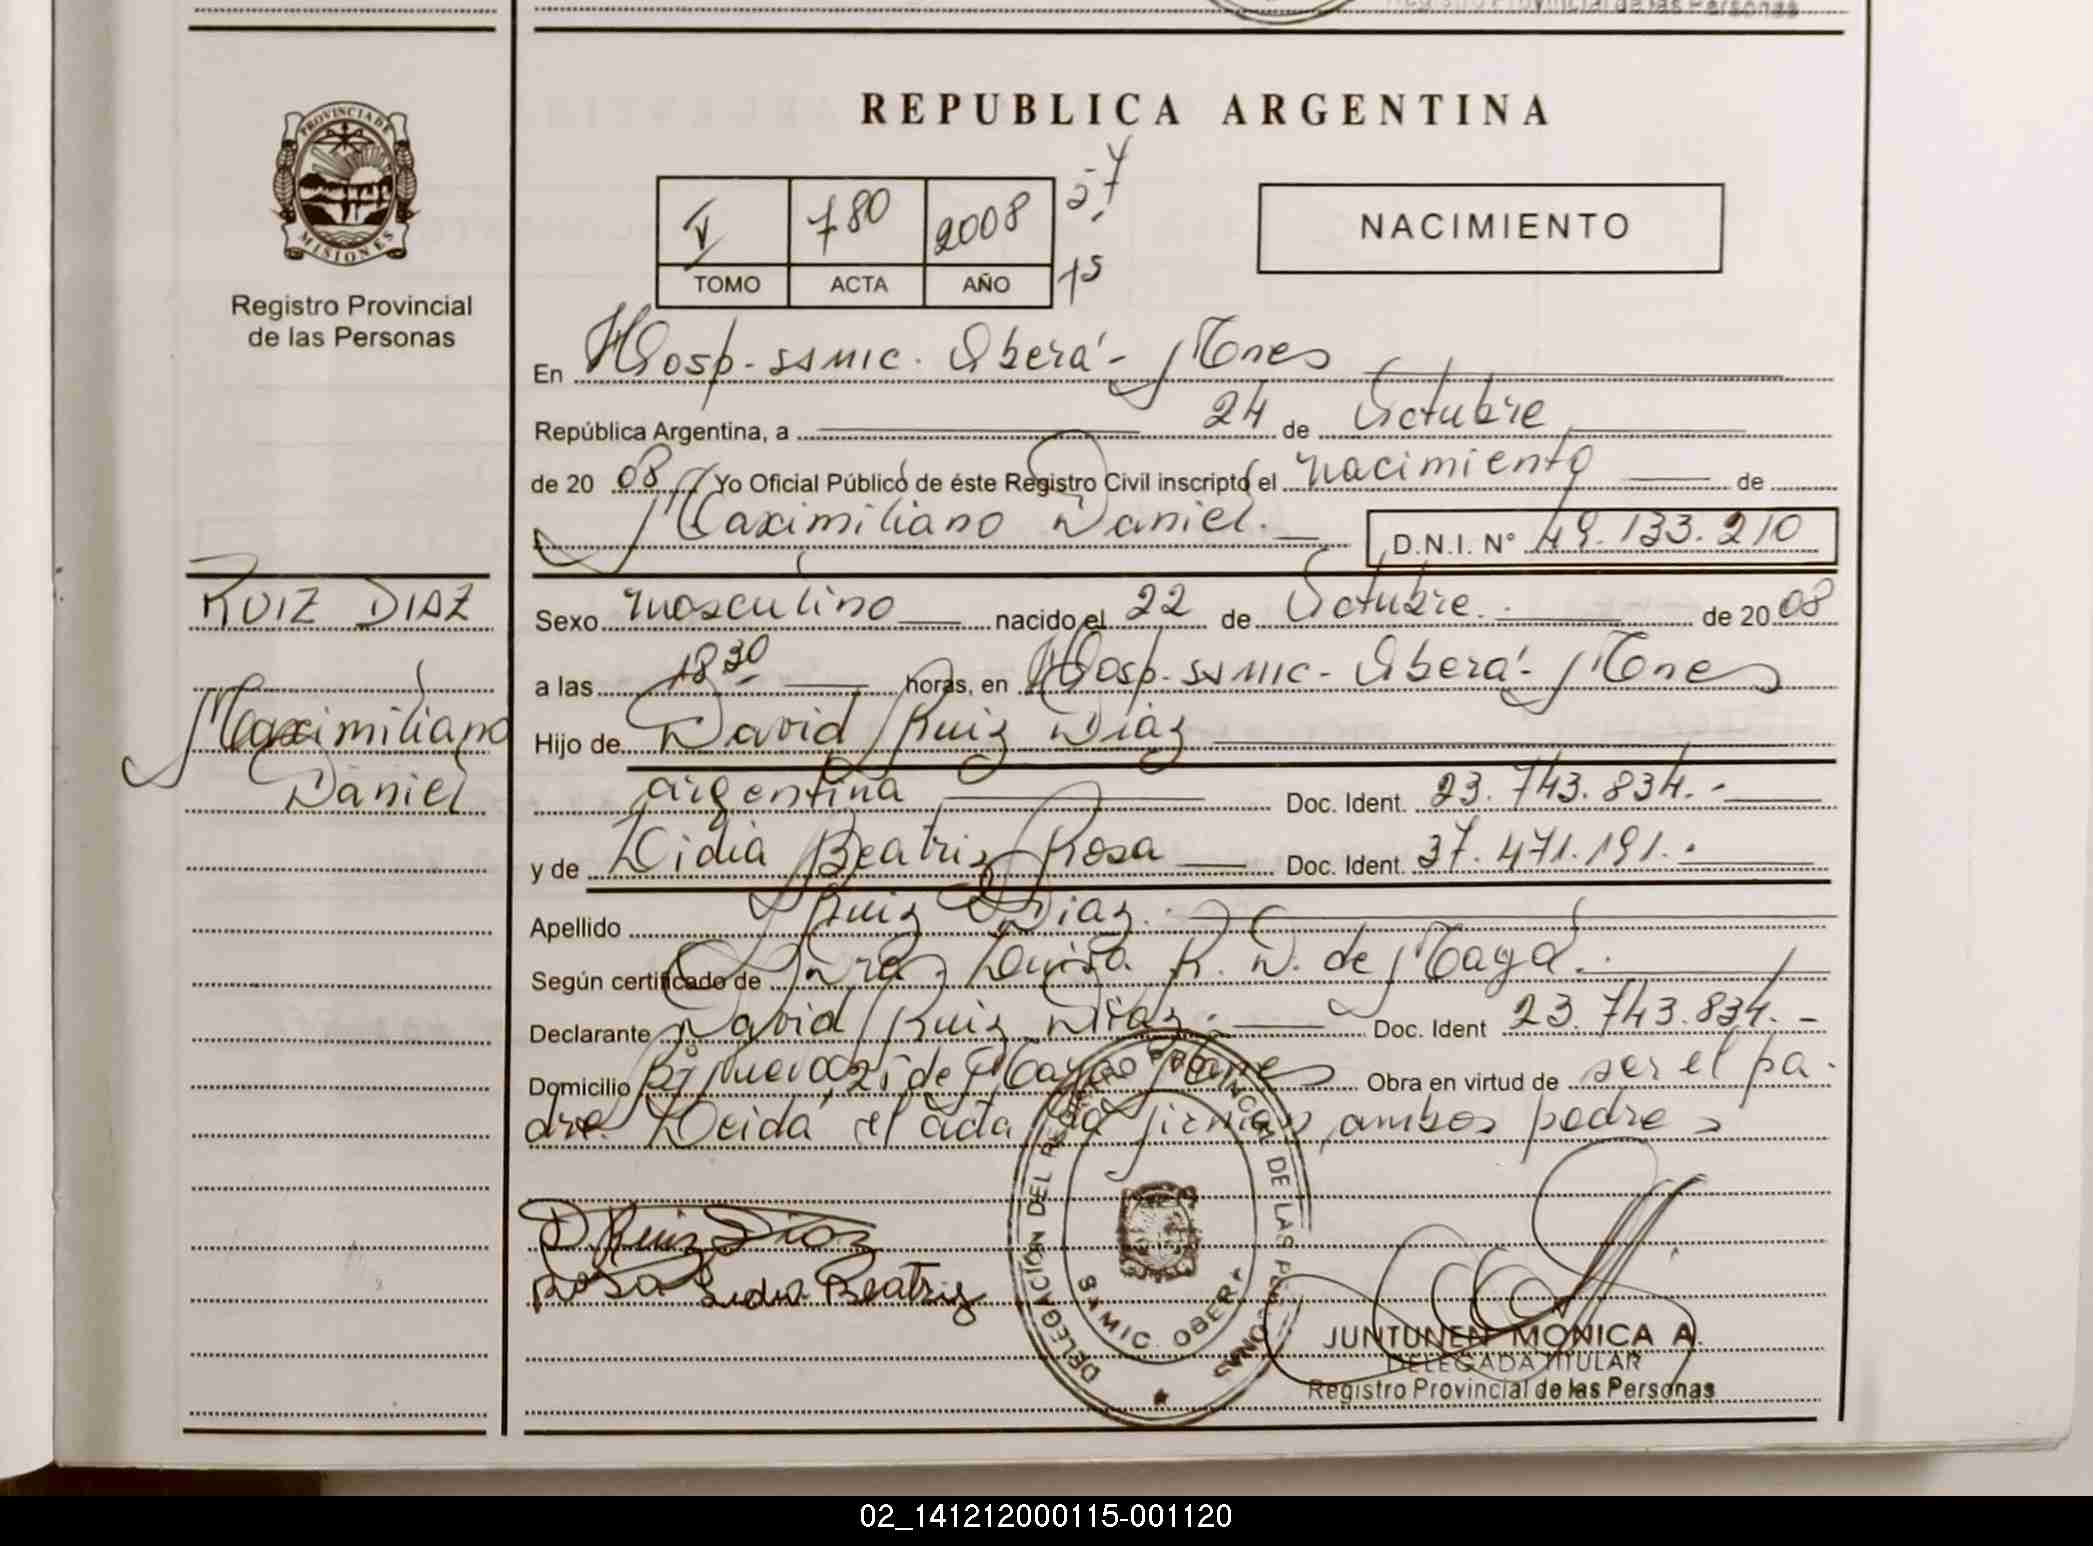 Registro Provincial de las Personas
PROVINCIA DE
MISIONES
Registro Provincial
de las Personas
REPUBLICA ARGENTINA
V 780 2008
TOMO ACTA AÑO
15
NACIMIENTO
En Hosp. SAMIC. Oberá - Mnes
República Argentina, a 24 de Octubre
de 20 08 Yo Oficial Público de éste Registro Civil inscripto el nacimiento de
Maximiliano Daniel. D.N.I. N° 49.133.210
RUIZ DIAZ
Maximiliano
Daniel
Sexo masculino nacido el 22 de Octubre. de 20 08
a las 18 30 horas, en Hosp. SAMIC - Oberá - Mnes
Hijo de David Ruiz Diaz
argentina Doc. Ident. 23.743.834.-
y de Lidia Beatriz Rosa Doc. Ident. 37.471.191.-
Apellido Ruiz Diaz.
Según certificado de Dra Luisa R. D. de
Declarante David Ruiz Diaz. Doc. Ident 23.743.834.-
Domicilio B° Nuevo, 25 de Mayo Mnes Obra en virtud de ser el pa-
dre. Leida el acta la firman ambos padres
D. Ruiz Diaz
Rosa Lidia Beatriz
DELEGACIÓN DEL REGISTRO PROVINCIAL DE LAS PERSONAS
SAMIC. OBERA
JUNTUNEN MONICA A.
DELEGADA TITULAR
Registro Provincial de las Personas
02_141212000115-001120